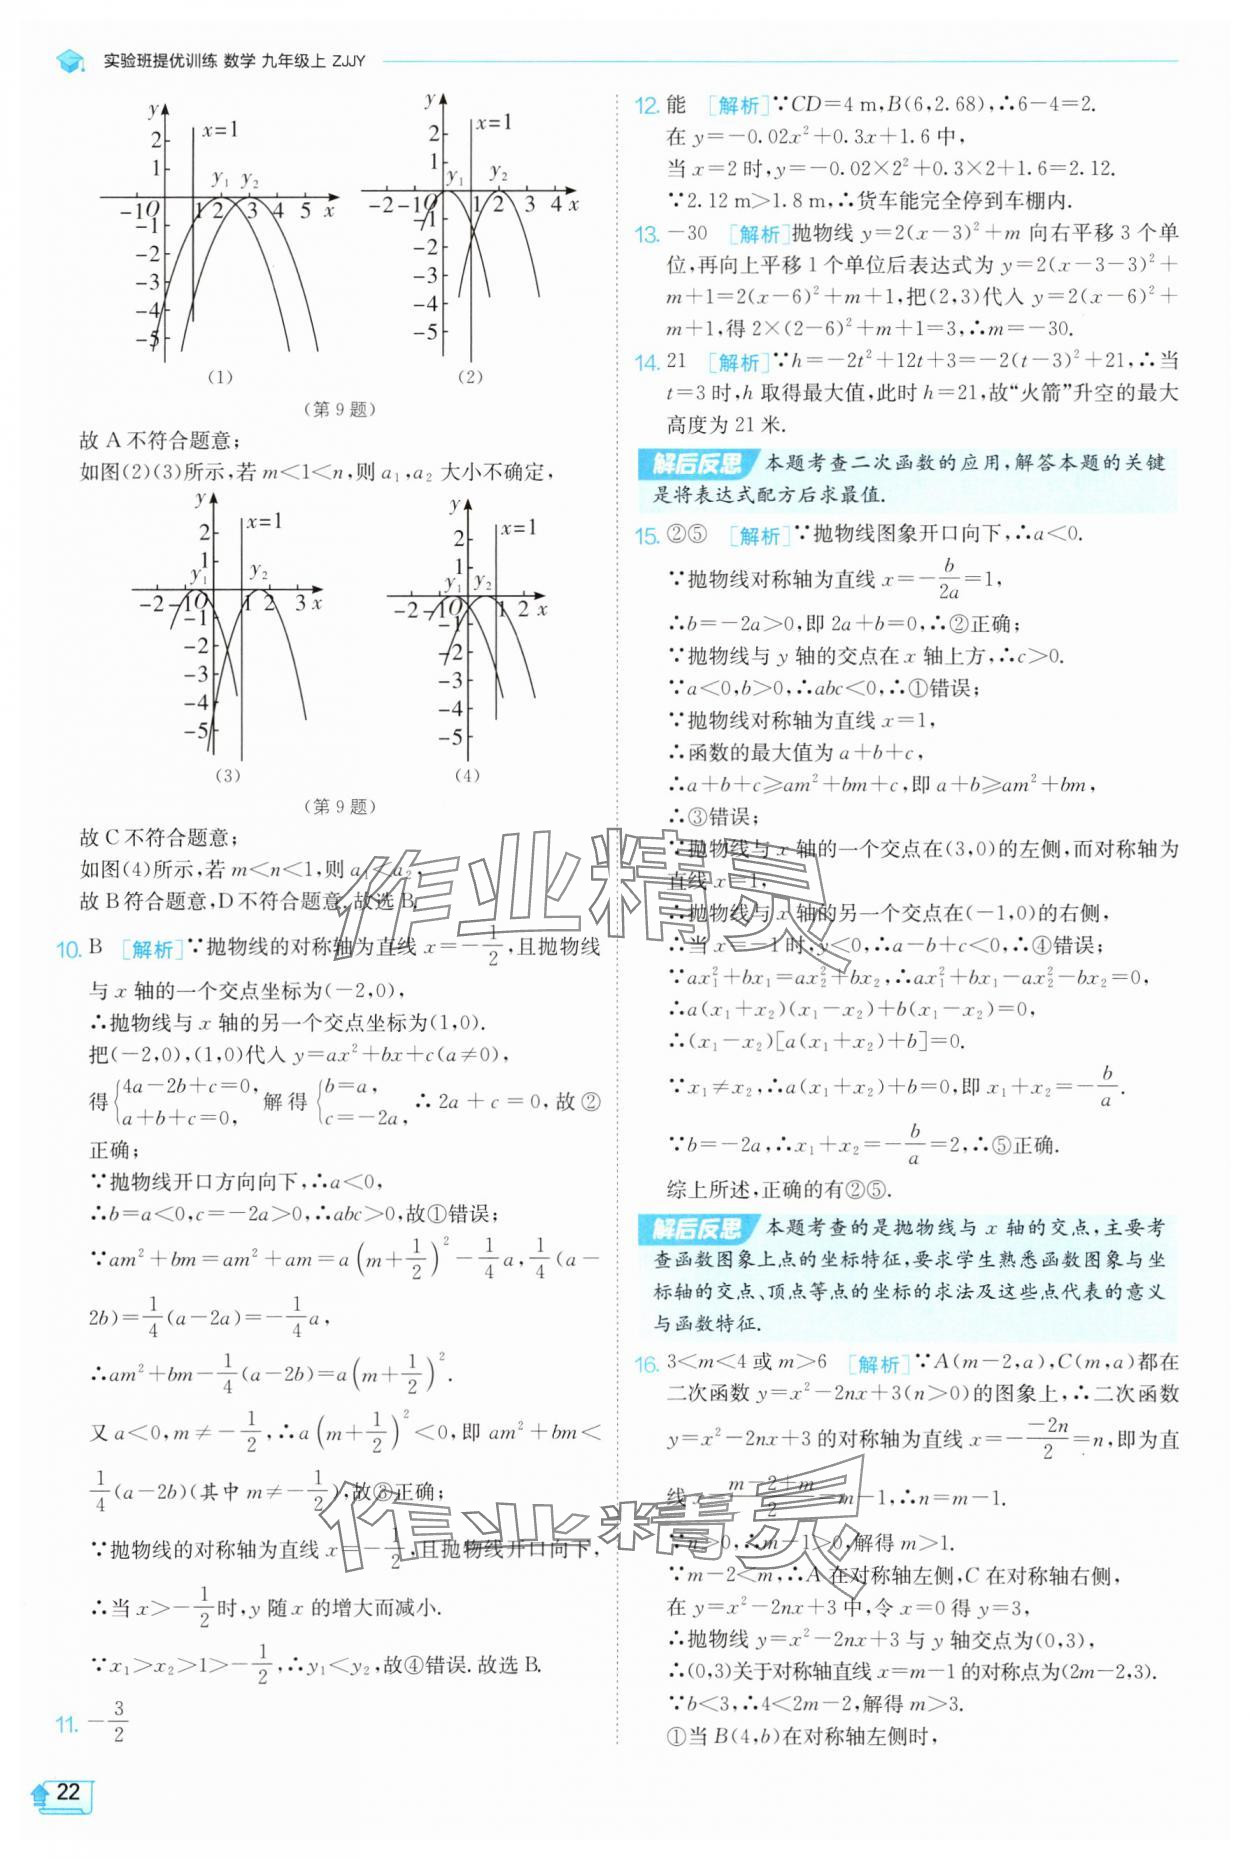 实验班提优训练 数学 九年级上 ZJJY
y
x=1
2
1
y₁ y₂
-1 O 1 2 3 4 5 x
-1
-2
-3
-4
-5
(1)
y
x=1
2
1
y₁ y₂
-2 -1 O 1 2 3 4 x
-1
-2
-3
-4
-5
(2)
(第9题)
故A不符合题意;
如图(2)(3)所示,若 m<1<n,则 a₁,a₂ 大小不确定,
y
x=1
2
1
y₁ y₂
-2 -1 O 1 2 3 x
-1
-2
-3
-4
-5
(3)
y
x=1
2
1
y₁ y₂
-2 -1 O 1 2 x
-1
-2
-3
-4
-5
(4)
(第9题)
故C不符合题意;
如图(4)所示,若 m<n<1,则 a₁<a₂,
故B符合题意,D不符合题意.故选B.
10. B [解析]∵抛物线的对称轴为直线 x=-1/2,且抛物线
与 x 轴的一个交点坐标为(-2,0),
∴抛物线与 x 轴的另一个交点坐标为(1,0).
把(-2,0),(1,0)代入 y=ax²+bx+c(a≠0),
得{4a-2b+c=0, a+b+c=0, 解得{b=a, c=-2a, ∴2a+c=0,故②
正确;
∵抛物线开口方向向下,∴a<0,
∴b=a<0,c=-2a>0,∴abc>0,故①错误;
∵am²+bm=am²+am=a(m+1/2)²-1/4a,1/4(a-
2b)=1/4(a-2a)=-1/4a,
∴am²+bm-1/4(a-2b)=a(m+1/2)².
又 a<0,m≠-1/2,∴a(m+1/2)²<0,即 am²+bm<
1/4(a-2b)(其中 m≠-1/2),故③正确;
∵抛物线的对称轴为直线 x=-1/2,且抛物线开口向下,
∴当 x>-1/2时,y 随 x 的增大而减小.
∵x₁>x₂>1>-1/2,∴y₁<y₂,故④错误.故选B.
11. -3/2
22
12. 能 [解析]∵CD=4 m,B(6,2.68),∴6-4=2.
在 y=-0.02x²+0.3x+1.6中,
当 x=2时,y=-0.02×2²+0.3×2+1.6=2.12.
∵2.12 m>1.8 m,∴货车能完全停到车棚内.
13. -30 [解析]抛物线 y=2(x-3)²+m 向右平移3个单
位,再向上平移1个单位后表达式为 y=2(x-3-3)²+
m+1=2(x-6)²+m+1,把(2,3)代入 y=2(x-6)²+
m+1,得 2×(2-6)²+m+1=3,∴m=-30.
14. 21 [解析]∵h=-2t²+12t+3=-2(t-3)²+21,∴当
t=3时,h 取得最大值,此时 h=21,故“火箭”升空的最大
高度为21米.
解后反思 本题考查二次函数的应用,解答本题的关键
是将表达式配方后求最值.
15. ②⑤ [解析]∵抛物线图象开口向下,∴a<0.
∵抛物线对称轴为直线 x=-b/2a=1,
∴b=-2a>0,即 2a+b=0,∴②正确;
∵抛物线与 y 轴的交点在 x 轴上方,∴c>0.
∵a<0,b>0,∴abc<0,∴①错误;
∵抛物线对称轴为直线 x=1,
∴函数的最大值为 a+b+c,
∴a+b+c≥am²+bm+c,即 a+b≥am²+bm,
∴③错误;
∵抛物线与 x 轴的一个交点在(3,0)的左侧,而对称轴为
直线 x=1,
∴抛物线与 x 轴的另一个交点在(-1,0)的右侧,
∴当 x=-1时,y<0,∴a-b+c<0,∴④错误;
∵ax₁²+bx₁=ax₂²+bx₂,∴ax₁²+bx₁-ax₂²-bx₂=0,
∴a(x₁+x₂)(x₁-x₂)+b(x₁-x₂)=0,
∴(x₁-x₂)[a(x₁+x₂)+b]=0.
∵x₁≠x₂,∴a(x₁+x₂)+b=0,即 x₁+x₂=-b/a.
∵b=-2a,∴x₁+x₂=-b/a=2,∴⑤正确.
综上所述,正确的有②⑤.
解后反思 本题考查的是抛物线与 x 轴的交点,主要考
查函数图象上点的坐标特征,要求学生熟悉函数图象与坐
标轴的交点、顶点等点的坐标的求法及这些点代表的意义
与函数特征.
16. 3<m<4或 m>6 [解析]∵A(m-2,a),C(m,a)都在
二次函数 y=x²-2nx+3(n>0)的图象上,∴二次函数
y=x²-2nx+3的对称轴为直线 x=--2n/2=n,即为直
线 x=m-2+m/2=m-1,∴n=m-1.
∵n>0,∴m-1>0,解得 m>1.
∵m-2<m,∴A在对称轴左侧,C在对称轴右侧,
在 y=x²-2nx+3中,令 x=0得 y=3,
∴抛物线 y=x²-2nx+3与 y 轴交点为(0,3),
∴(0,3)关于对称轴直线 x=m-1的对称点为(2m-2,3).
∵b<3,∴4<2m-2,解得 m>3.
①当 B(4,b)在对称轴左侧时,
作业精灵
作业精灵